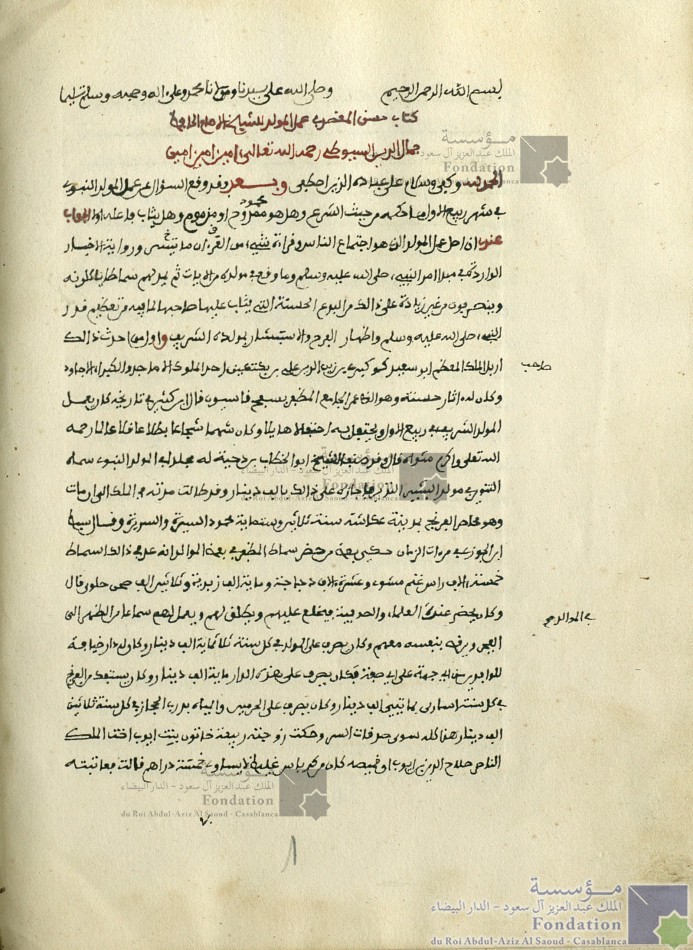 بسم الله الرحمن الرحيم وصلى الله على سيدنا ومولانا محمد وعلى اله وصحبه وسلم تسليما
كتاب حسن المقصد في عمل المولد للشيخ الامام الحافظ
جمال الدين السيوطي رحمه الله تعالى امين امين امين
الحمد لله وكفى وسلام على عباده الذين اصطفى وبعد فقد وقع السؤال عن عمل المولد النبوي
في شهر ربيع الاول ما حكمه من حيث الشرع وهل هو محمود او مذموم وهل يثاب فاعله او لا الجواب
عندي ان اصل عمل المولد الذي هو اجتماع الناس وقراءة شيء من القرءان ما تيسر ورواية الاخبار
الواردة في مبدا امر النبي صلى الله عليه وسلم وما وقع في مولده من الايات ثم يمد لهم سماط ياكلونه
وينصرفون من غير زيادة على ذالك من البدع الحسنة التي يثاب عليها صاحبها لما فيه من تعظيم قدر
النبي صلى الله عليه وسلم واظهار الفرح والاستبشار بمولده الشريف واول من احدث ذالك
صاحب
اربل الملك المظفر ابو سعيد كوكبري بن زين الدين علي بن بكتكين احد الملوك الامجاد والكبراء الاجواد
وكان له اثار حسنة وهو الذي عمر الجامع المظفري بسفح قاسيون قال ابن كثير في تاريخه كان يعمل
المولد الشريف في ربيع الاول ويحتفل به احتفالا هايلا وكان شهما شجاعا بطلا عاقلا عالما رحمه
الله تعلى واكرم مثواه قال وقد صنف الشيخ ابو الخطاب بن دحية له مجلدا في المولد النبوي سماه
التنوير في مولد البشير النذير فاجازه على ذالك بالف دينار وقد طالت مدته في الملك الى ان مات
وهو محاصر الفرنج بمدينة عكا سنة ثلاثين وستماية محمود السيرة والسريرة وقال سبط
ابن الجوزي في مرءات الزمان حكى بعض من حضر سماط المظفر في بعض الموالد انه عد في ذالك السماط
خمسة الاف راس غنم مشوي وعشرة الاف دجاجة وماية الف زبدية وثلاثين الف صحن حلوى قال
وكان يحضر عنده في المولد
العلماء والصوفية فيخلع عليهم ويطلق لهم ويعمل لهم سماعا من الظهر الى
الفجر ويرقص بنفسه معهم وكان يصرف على المولد في كل سنة ثلاثماية الف دينار وكان له دار ضيافة
للوافدين من اي جهة على اي صفة فكان يصرف على هذه الدار ماية الف دينار وكان يستفك من الفرنج
في كل سنة اسارى بمايتي الف دينار وكان يصرف على الحرمين والمياه بدرب الحجاز في كل سنة ثلاثين
الف دينار هذا كله سوى صدقات السر وحكت زوجته ربيعة خاتون بنت ايوب اخت الملك
الناصر صلاح الدين بن ايوب ان قميصه كان من كرباس غليظ لا يساوي خمسة دراهم قالت فعاتبته
1
مؤسسة
الملك عبد العزيز آل سعود - الدار البيضاء
Fondation
du Roi Abdul-Aziz Al Saoud - Casablanca